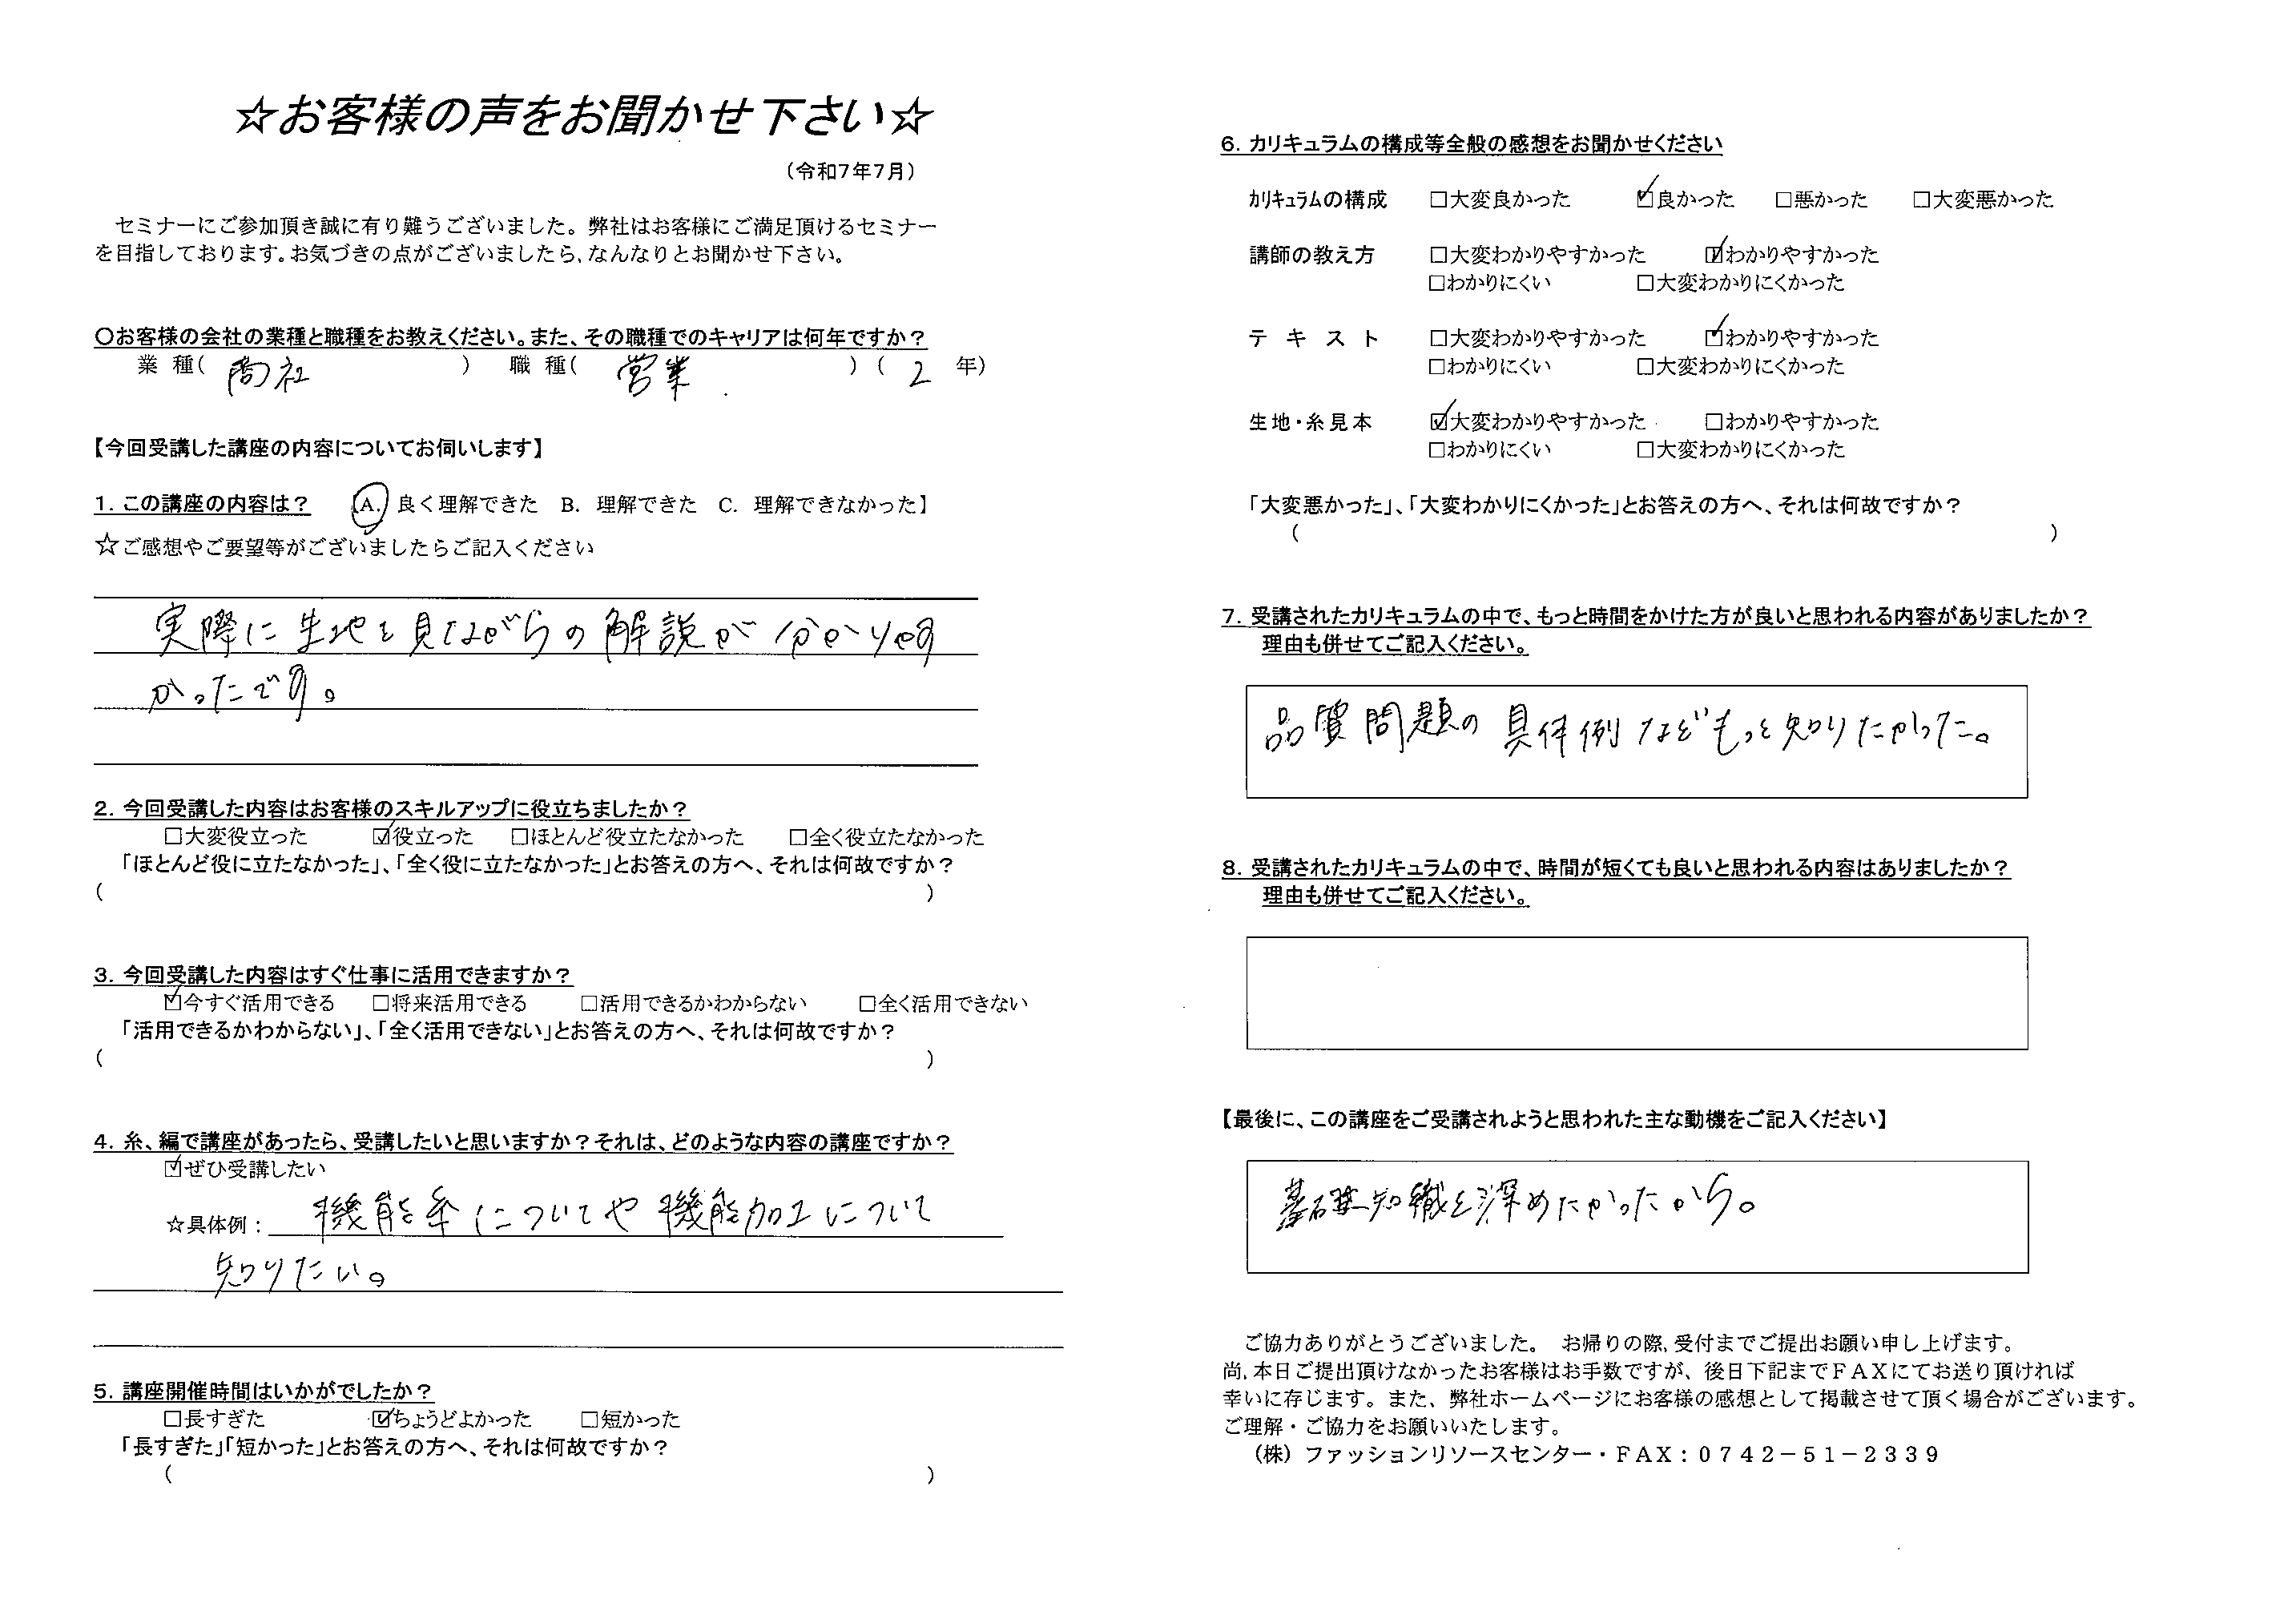 ☆お客様の声をお聞かせ下さい☆
（令和7年7月）
セミナーにご参加頂き誠に有り難うございました。弊社はお客様にご満足頂けるセミナー
を目指しております。お気づきの点がございましたら、なんなりとお聞かせ下さい。
〇お客様の会社の業種と職種をお教えください。また、その職種でのキャリアは何年ですか？
業 種（ 商社 ） 職 種（ 営業 ）（ 2 年）
【今回受講した講座の内容についてお伺いします】
1. この講座の内容は？ 【A. 良く理解できた B. 理解できた C. 理解できなかった】
☆ご感想やご要望等がございましたらご記入ください
実際に生地を見ながらの解説が分かりやす
かったです。
2. 今回受講した内容はお客様のスキルアップに役立ちましたか？
□大変役立った ☑役立った □ほとんど役立たなかった □全く役立たなかった
「ほとんど役に立たなかった」、「全く役に立たなかった」とお答えの方へ、それは何故ですか？
（ ）
3. 今回受講した内容はすぐ仕事に活用できますか？
☑今すぐ活用できる □将来活用できる □活用できるかわからない □全く活用できない
「活用できるかわからない」、「全く活用できない」とお答えの方へ、それは何故ですか？
（ ）
4. 糸、編で講座があったら、受講したいと思いますか？それは、どのような内容の講座ですか？
☑ぜひ受講したい
☆具体例： 機能糸についてや機能加工について
知りたい。
5. 講座開催時間はいかがでしたか？
□長すぎた ☑ちょうどよかった □短かった
「長すぎた」「短かった」とお答えの方へ、それは何故ですか？
（ ）
6. カリキュラムの構成等全般の感想をお聞かせください
ｶﾘｷｭﾗﾑの構成 □大変良かった ☑良かった □悪かった □大変悪かった
講師の教え方 □大変わかりやすかった ☑わかりやすかった
□わかりにくい □大変わかりにくかった
テ キ ス ト □大変わかりやすかった ☑わかりやすかった
□わかりにくい □大変わかりにくかった
生地・糸見本 ☑大変わかりやすかった □わかりやすかった
□わかりにくい □大変わかりにくかった
「大変悪かった」、「大変わかりにくかった」とお答えの方へ、それは何故ですか？
（ ）
7. 受講されたカリキュラムの中で、もっと時間をかけた方が良いと思われる内容がありましたか？
理由も併せてご記入ください。
品質問題の具体例などもっと知りたかった。
8. 受講されたカリキュラムの中で、時間が短くても良いと思われる内容はありましたか？
理由も併せてご記入ください。
【最後に、この講座をご受講されようと思われた主な動機をご記入ください】
基礎知識を深めたかったから。
ご協力ありがとうございました。 お帰りの際、受付までご提出お願い申し上げます。
尚、本日ご提出頂けなかったお客様はお手数ですが、後日下記までＦＡＸにてお送り頂ければ
幸いに存じます。また、弊社ホームページにお客様の感想として掲載させて頂く場合がございます。
ご理解・ご協力をお願いいたします。
（株）ファッションリソースセンター・ＦＡＸ：０７４２－５１－２３３９